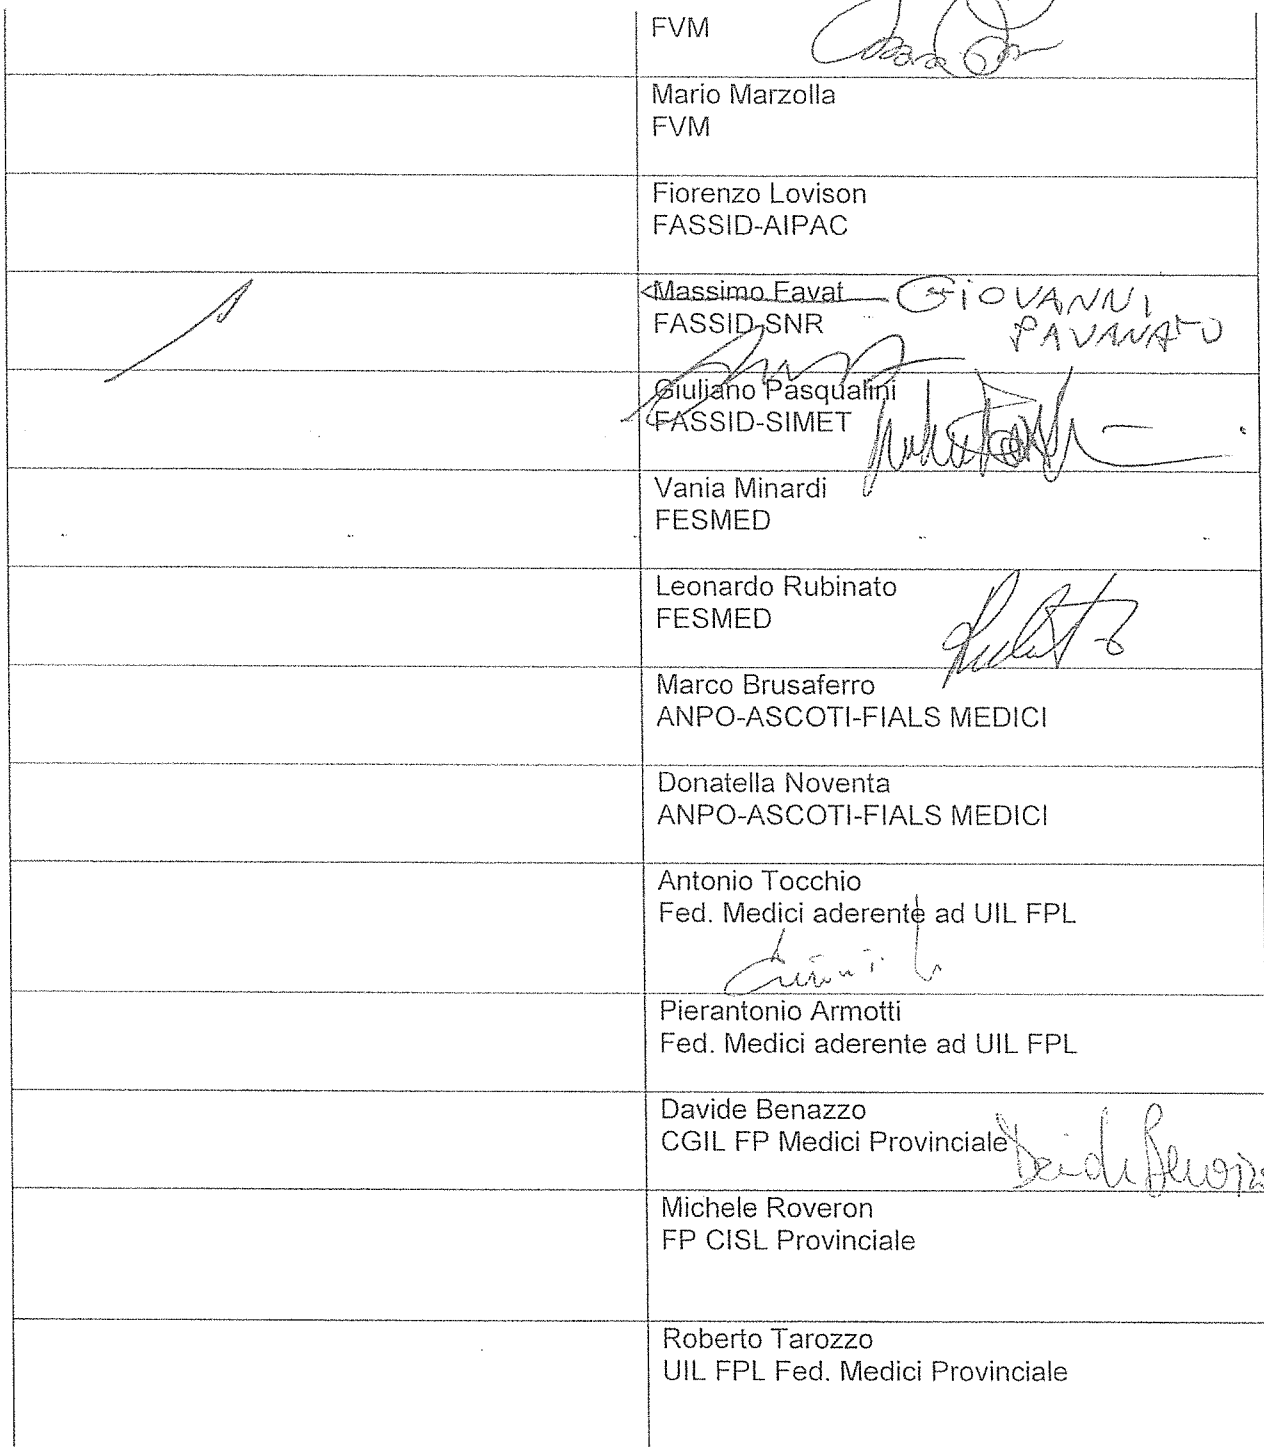 FVM
Mario Marzolla
FVM
Fiorenzo Lovison
FASSID-AIPAC
Massimo Favat GIOVANNI
FASSID-SNR PAVANATO
Giuliano Pasqualini
FASSID-SIMET
Vania Minardi
FESMED
Leonardo Rubinato
FESMED
Marco Brusaferro
ANPO-ASCOTI-FIALS MEDICI
Donatella Noventa
ANPO-ASCOTI-FIALS MEDICI
Antonio Tocchio
Fed. Medici aderente ad UIL FPL
Pierantonio Armotti
Fed. Medici aderente ad UIL FPL
Davide Benazzo
CGIL FP Medici Provinciale
Michele Roveron
FP CISL Provinciale
Roberto Tarozzo
UIL FPL Fed. Medici Provinciale